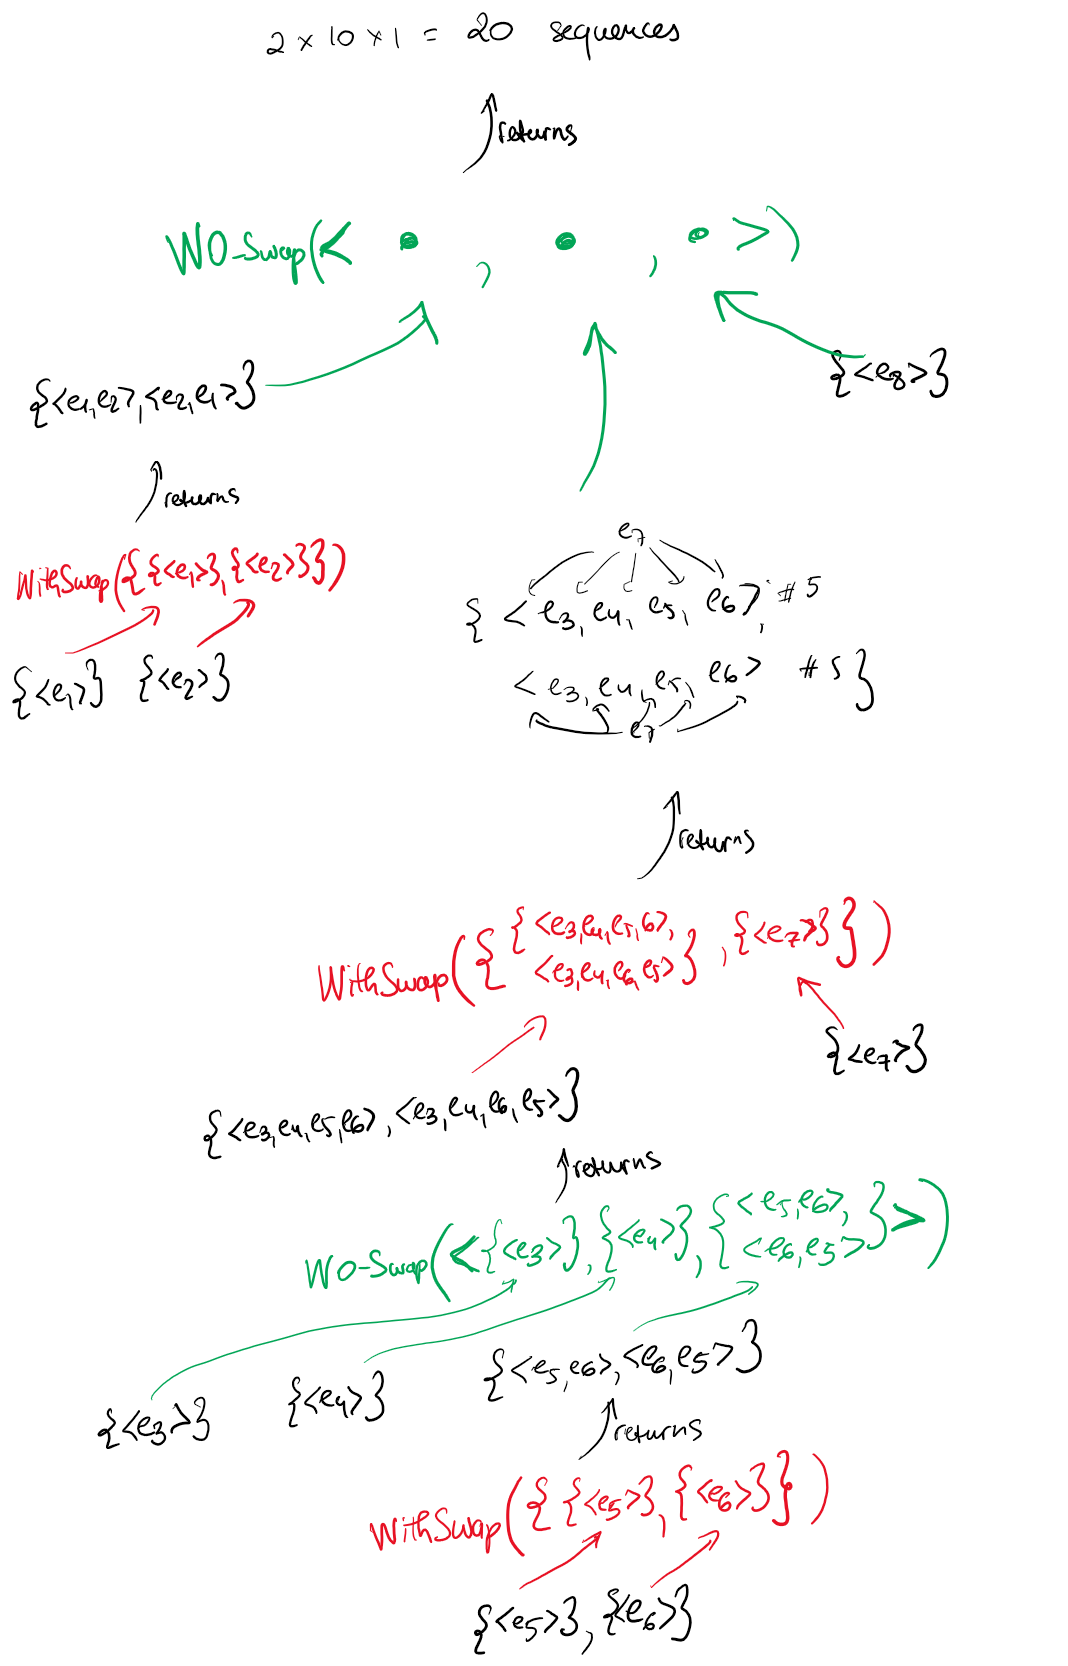 2 × 10 × 1 = 20 sequences
returns
WO-Swap(< • , • , • >)
{<e8>}
{<e1,e2>,<e2,e1>}
returns
WithSwap({{<e1>},{<e2>}})
{<e1>} {<e2>}
e7
{ < e3, e4, e5, e6>, #5
< e3, e4, e5, e6> #5 }
e7
returns
WithSwap({ {<e3,e4,e5,6>,
<e3,e4,e6,e5>} , {<e7>} })
{<e7>}
{<e3,e4,e5,e6>,<e3,e4,e6,e5>}
returns
WO-Swap(<{<e3>},{<e4>},{<e5,e6>,
<e6,e5>}>)
{<e5,e6>,<e6,e5>}
{<e3>} {<e4>}
returns
WithSwap({ {<e5>},{<e6>}})
{<e5>},{<e6>}